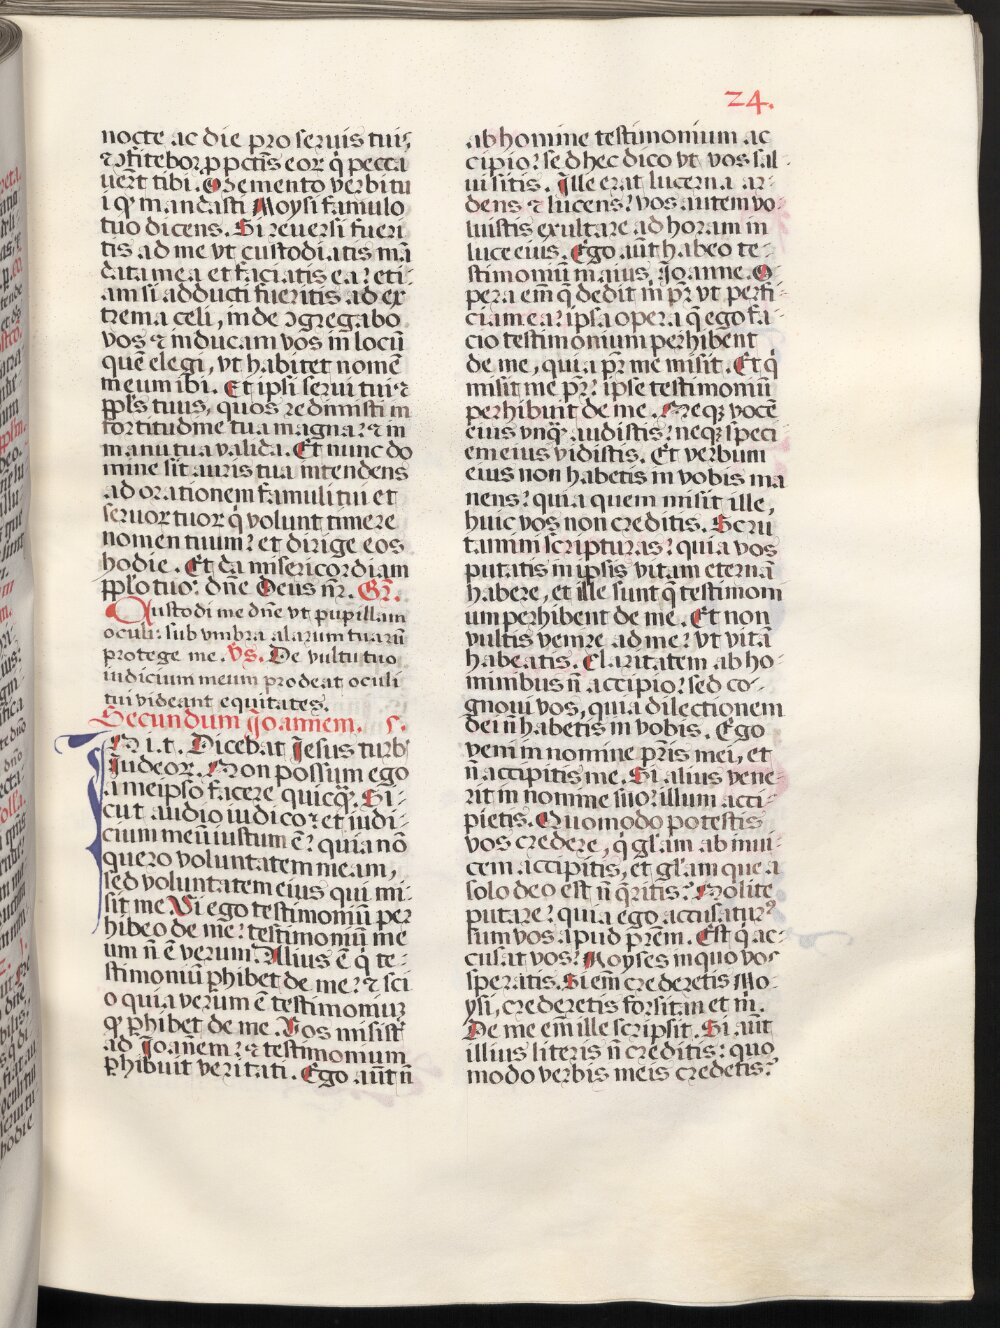 24.
nocte ac die pro seruis tuis
⁊ ꝯfitebor p pctis eoꝝ q̇ pecca
uer̄t tibi. Memento verbi tu
i qꝫ mandasti Moysi famulo
tuo dicens. Si reuersi fueri
tis ad me vt custodiatis mā
data mea et faciatis ea: eti-
am si adducti fueritis ad ex
trema celi, inde ꝯgregabo
vos ⁊ inducam vos in locū
quē elegi, vt habitet nomē
meum ibi. Et ipsi serui tui ⁊
ppl̄s tuus, quos redimisti in
fortitudine tua magna: ⁊ in
manu tua valida. Et nunc do
mine sit auris tua intendens
ad orationem famuli tui et
seruoꝝ tuoꝝ q̇ volunt timere
nomen tuum: et dirige eos
hodie. Et da misericordiam
pplo tuo: dn̄e Deus nr̄. Gr̄.
Custodi me dn̄e vt pupillam
oculi: sub vmbra alarum tuarū
protege me. Vs. De vultu tuo
iudicium meum prodeat oculi
tui videant equitates.
Secundum Joannem. 5.
In i. t. Dicebat Jesus turb̄
Judeoꝝ. Non possum ego
a meipso facere quicqꝫ. Si-
cut audio iudico: et iudi-
cium meū iustum ē: quia nō
quero voluntatem meam,
sed voluntatem eius qui mi-
sit me Si ego testimoniū per
hibeo de me: testimoniū me
um n̄ ē verum. Alius ē q̇ te-
stimoniū ꝑhibet de me: ⁊ sci
o quia verum ē testimoniuꝫ
qꝫ ꝑhibet de me. Vos misist̄
ad Joānem: ⁊ testimonium
ꝑhibuit veritati. Ego aūt n̄
ab homine testimonium ac
cipio: sed hec dico vt vos sal-
ui sitis. Ille erat lucerna ar-
dens ⁊ lucens: vos autem vo-
luistis exultare ad horam in
luce eius. Ego aūt habeo te-
stimoniū maius, Joanne. O-
pera em̄ q̄ dedit m̄ pr̄ vt perfi-
ciam ea: ipsa opera q̄ ego fa-
cio testimonium perhibent
de me, quia pr̄ me misit. Et q̇
misit me pr̄: ipse testimoniū
perhibuit de me. Neqꝫ vocē
eius vnqꝫ audistis: neqꝫ speci-
em eius vidistis. Et verbum
eius non habetis in vobis ma
nens: quia quem misit ille,
huic vos non creditis. Scru
tamini scripturas: quia vos
putatis in ipsis vitam eternā
habere, et ille sunt q̄ testimoni
um perhibent de me. Et non
vultis venire ad me: vt vitā
habeatis. Claritatem ab ho-
minibus n̄ accipio: sed co-
gnoui vos, quia dilectionem
dei n̄ habetis in vobis. Ego
veni in nomine pr̄is mei, et
n̄ accipitis me. Si alius vene-
rit in nomine suo: illum acci-
pietis. Quomodo potestis
vos credere, q̇ gl̄am ab inui-
cem accipitis, et gl̄am que a
solo deo est n̄ q̄ritis? Nolite
putare: quia ego accusatur⁹
sum vos apud pr̄em. Est q̇ ac-
cusat vos: Moyses in quo vos
speratis. Si em̄ crederetis Mo-
ysi, crederetis forsitan et m̄.
De me em̄ ille scripsit. Si aūt
illius literis n̄ creditis: quo
modo verbis meis credetis?